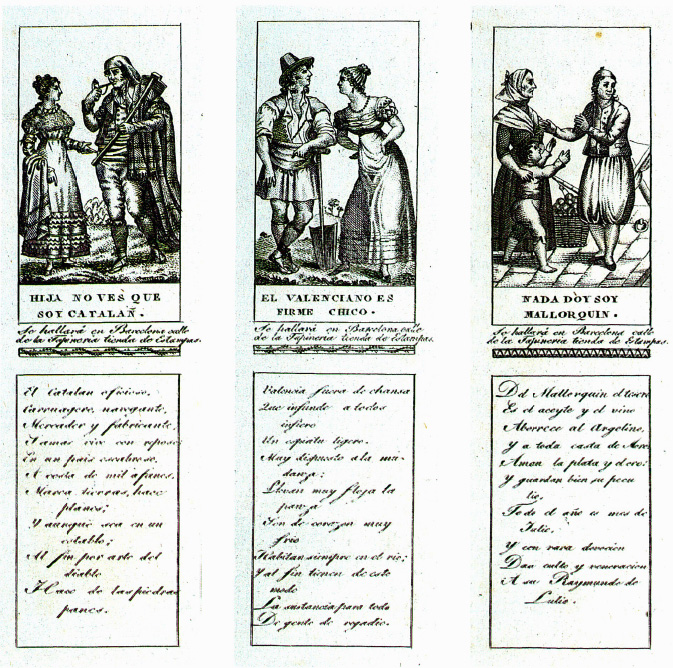 HIJA NO VES QUE
SOY CATALAN.
Se hallará en Barcelona calle
de la Tapineria tienda de Estampas.
El Catalan oficioso,
Carruagero, navegante,
Mercader y fabricante,
Jamas vive con reposo
En un pais escabroso,
A costa de mil afanes,
Marca tierras, hace
planes;
Y aunque sea en un
establo;
Al fin por arte del
diablo
Hace de las piedras
panes.
EL VALENCIANO ES
FIRME CHICO.
Se hallará en Barcelona calle
de la Tapineria tienda de Estampas.
Valencia fuera de chansa
Que infunde a todos
infiero
Un espiritu ligero.
Muy dispuesto a la mu-
danza;
Llevan muy floja la
panza
Son de corazon muy
frio
Habitan siempre en el rio;
Y al fin tienen de este
modo
La sustancia para todo
De gente de regadio.
NADA DOY SOY
MALLORQUIN.
Se hallará en Barcelona calle
de la Tapineria tienda de Estampas.
Del Mallorquin el tesoro
Es el aceyte y el vino
Aborrece al Argelino,
Y a toda casta de Moro:
Aman la plata y el oro;
Y guardan bien su pecu
lio,
Todo el año es mes de
Julio,
Y con rara devocion
Dan culto y veneracion
A su Raymundo de
Lulio.